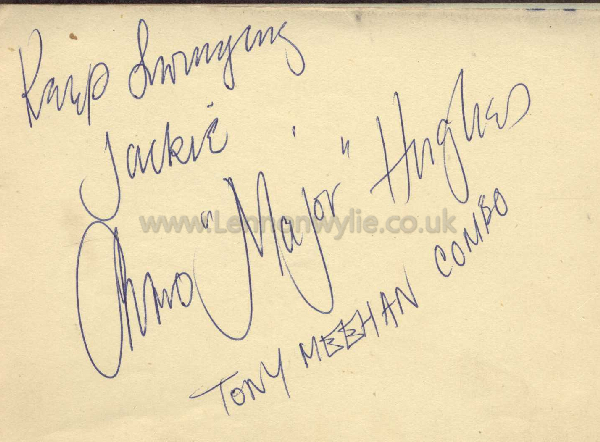 Keep Swinging
Jackie
Chris "Major" Hughes
www.Lennonwylie.co.uk
TONY MEEHAN COMBO